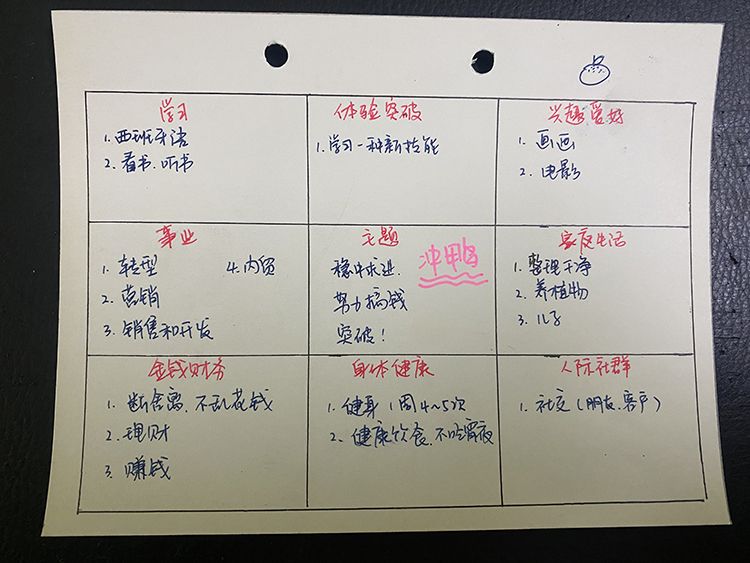 学习
1. 西班牙语
2. 看书、听书
体验突破
1. 学习一种新技能
兴趣爱好
1. 画画
2. 电影
事业
1. 转型
4. 内贸
2. 营销
3. 销售和开发
主题
稳中求进.
努力搞钱
突破！
冲鸭
家庭生活
1. 整理干净
2. 养植物
3. 儿子
金钱财务
1. 断舍离、不乱花钱
2. 理财
3. 赚钱
身体健康
1. 健身 1周4~5次
2. 健康饮食、不吃宵夜
人际社群
1. 社交（朋友、客户）